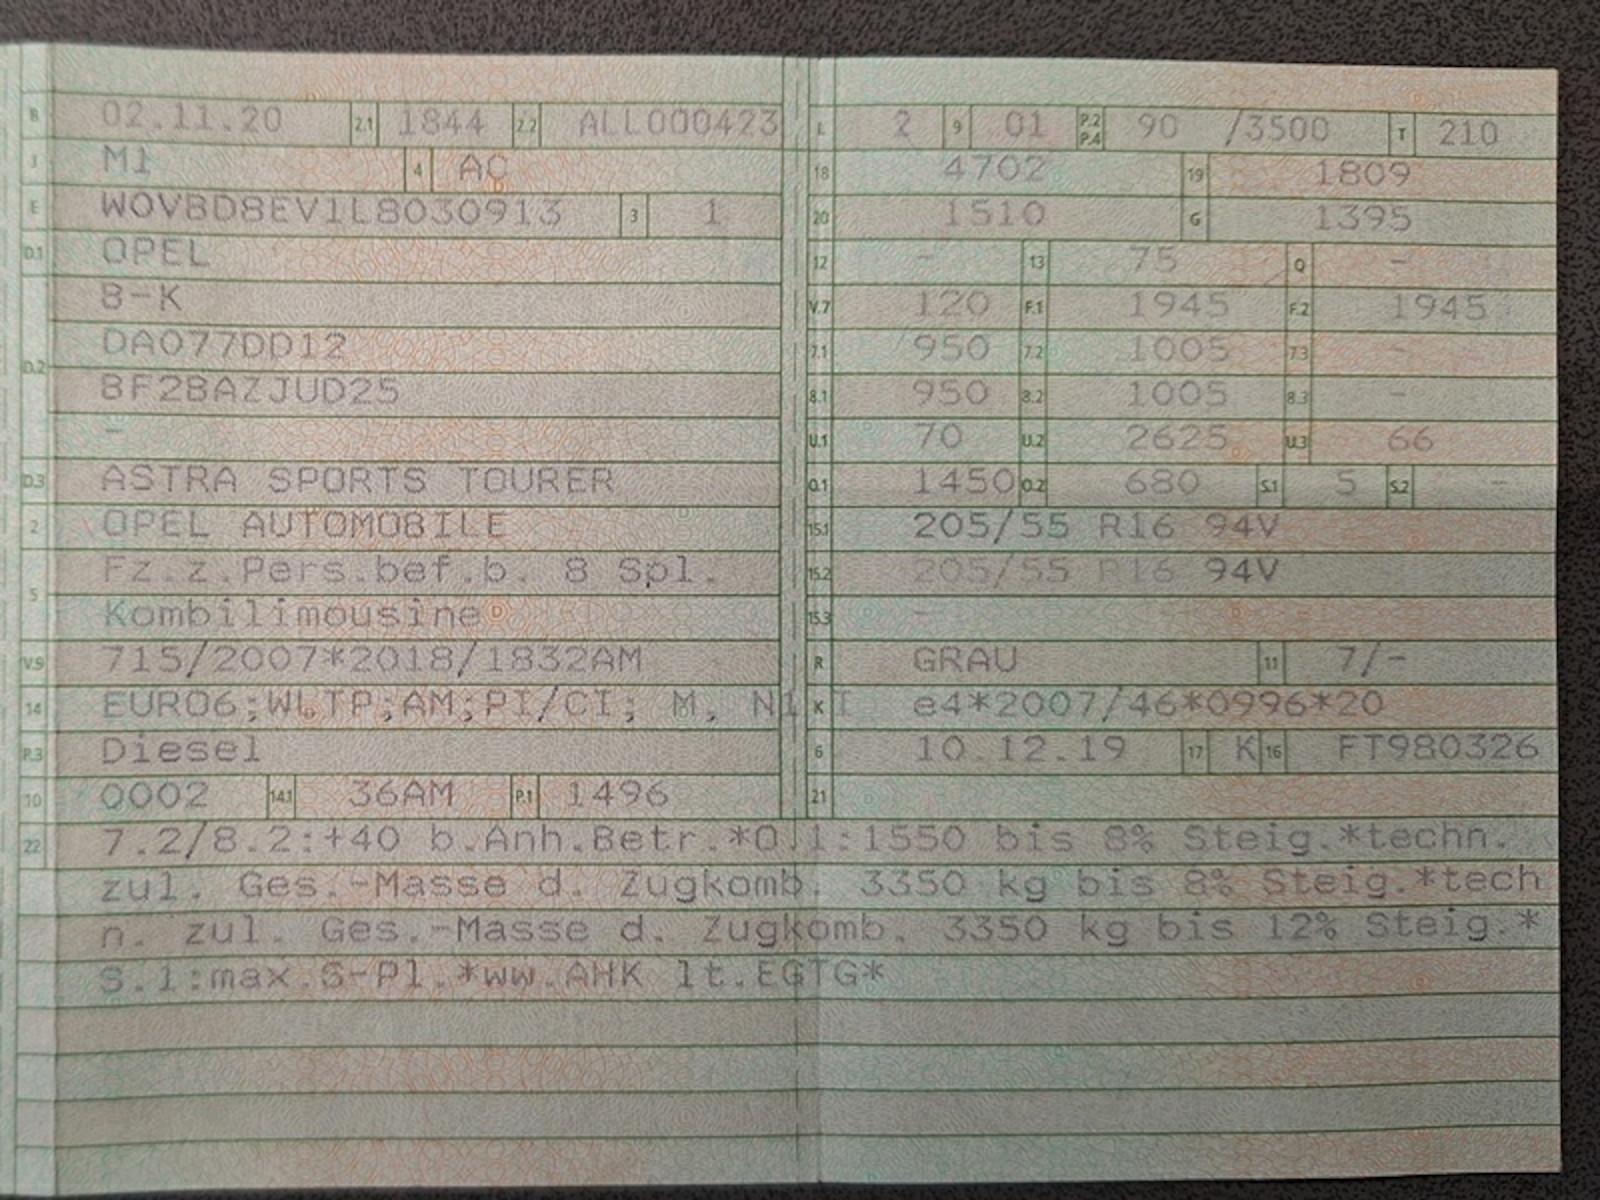 B 02.11.20 2.1 1844 2.2 ALL000423
J M1 4 AC
E W0VBD8EV1L8030913 3 1
D.1 OPEL
8-K
D.2 DA077DD12
BF2BAZJUD25
-
D.3 ASTRA SPORTS TOURER
2 OPEL AUTOMOBILE
Fz.z.Pers.bef.b. 8 Spl.
5 Kombilimousine
V.9 715/2007*2018/1832AM
14 EURO6;WLTP;AM;PI/CI; M, N1 I
P.3 Diesel
10 0002 14.1 36AM P.1 1496
L 2 9 01 P.2 P.4 90 /3500 T 210
18 4702 19 1809
20 1510 G 1395
12 - 13 75 Q -
V.7 120 F.1 1945 F.2 1945
7.1 950 7.2 1005 7.3 -
8.1 950 8.2 1005 8.3 -
U.1 70 U.2 2625 U.3 66
O.1 1450 O.2 680 S.1 5 S.2 -
15.1 205/55 R16 94V
15.2 205/55 R16 94V
15.3 -
R GRAU 11 7/-
K e4*2007/46*0996*20
6 10.12.19 17 K 16 FT980326
21
22 7.2/8.2:+40 b.Anh.Betr.*O.1:1550 bis 8% Steig.*techn.
zul. Ges.-Masse d. Zugkomb. 3350 kg bis 8% Steig.*tech
n. zul. Ges.-Masse d. Zugkomb. 3350 kg bis 12% Steig.*
S.1:max.S-Pl.*ww.AHK lt.EGTG*